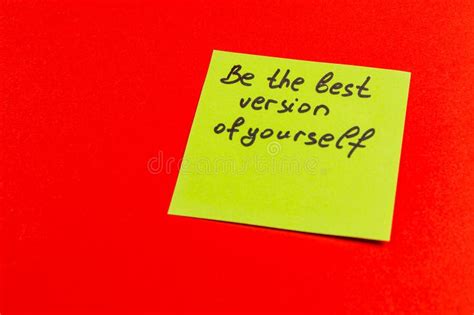 Be the best
version
of yourself
dreamstime